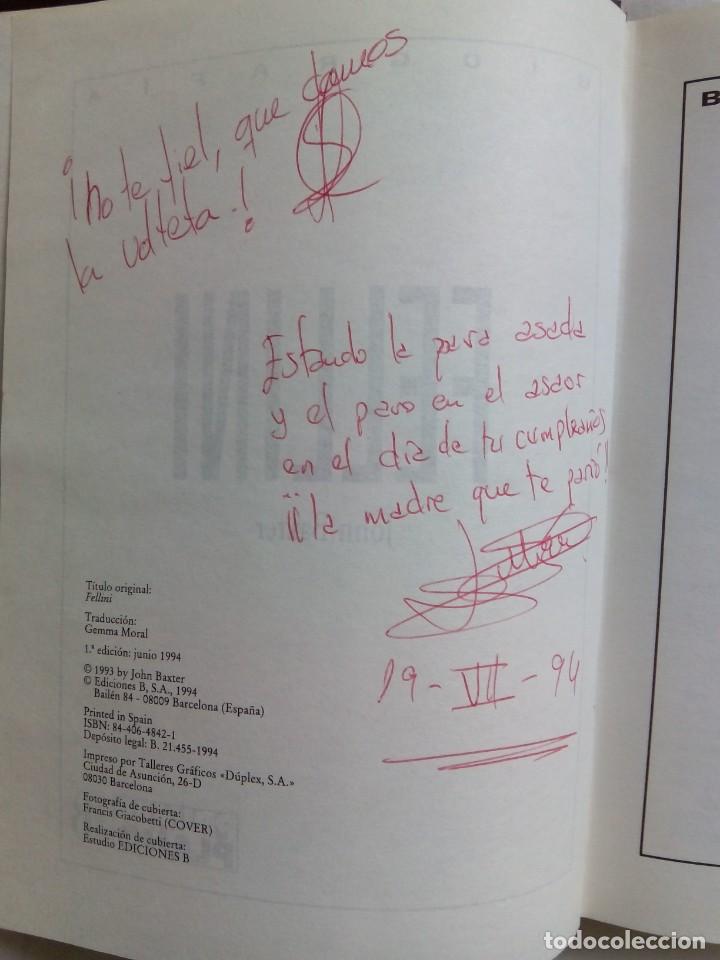 ¡No te fíes, que damos
la vuelta!
Estando la pava asada
y el pavo en el asaor
en el día de tu cumpleaños
¡¡¡la madre que te parió!!
19-VII-94
FELLINI
John Baxter
Título original:
Fellini
Traducción:
Gemma Moral
1.ª edición: junio 1994
© 1993 by John Baxter
© Ediciones B, S.A., 1994
Bailén 84 - 08009 Barcelona (España)
Printed in Spain
ISBN: 84-406-4842-1
Depósito legal: B. 21.455-1994
Impreso por Talleres Gráficos «Dúplex, S.A.»
Ciudad de Asunción, 26-D
08030 Barcelona
Fotografía de cubierta:
Francis Giacobetti (COVER)
Realización de cubierta:
Estudio EDICIONES B
B
todocoleccion